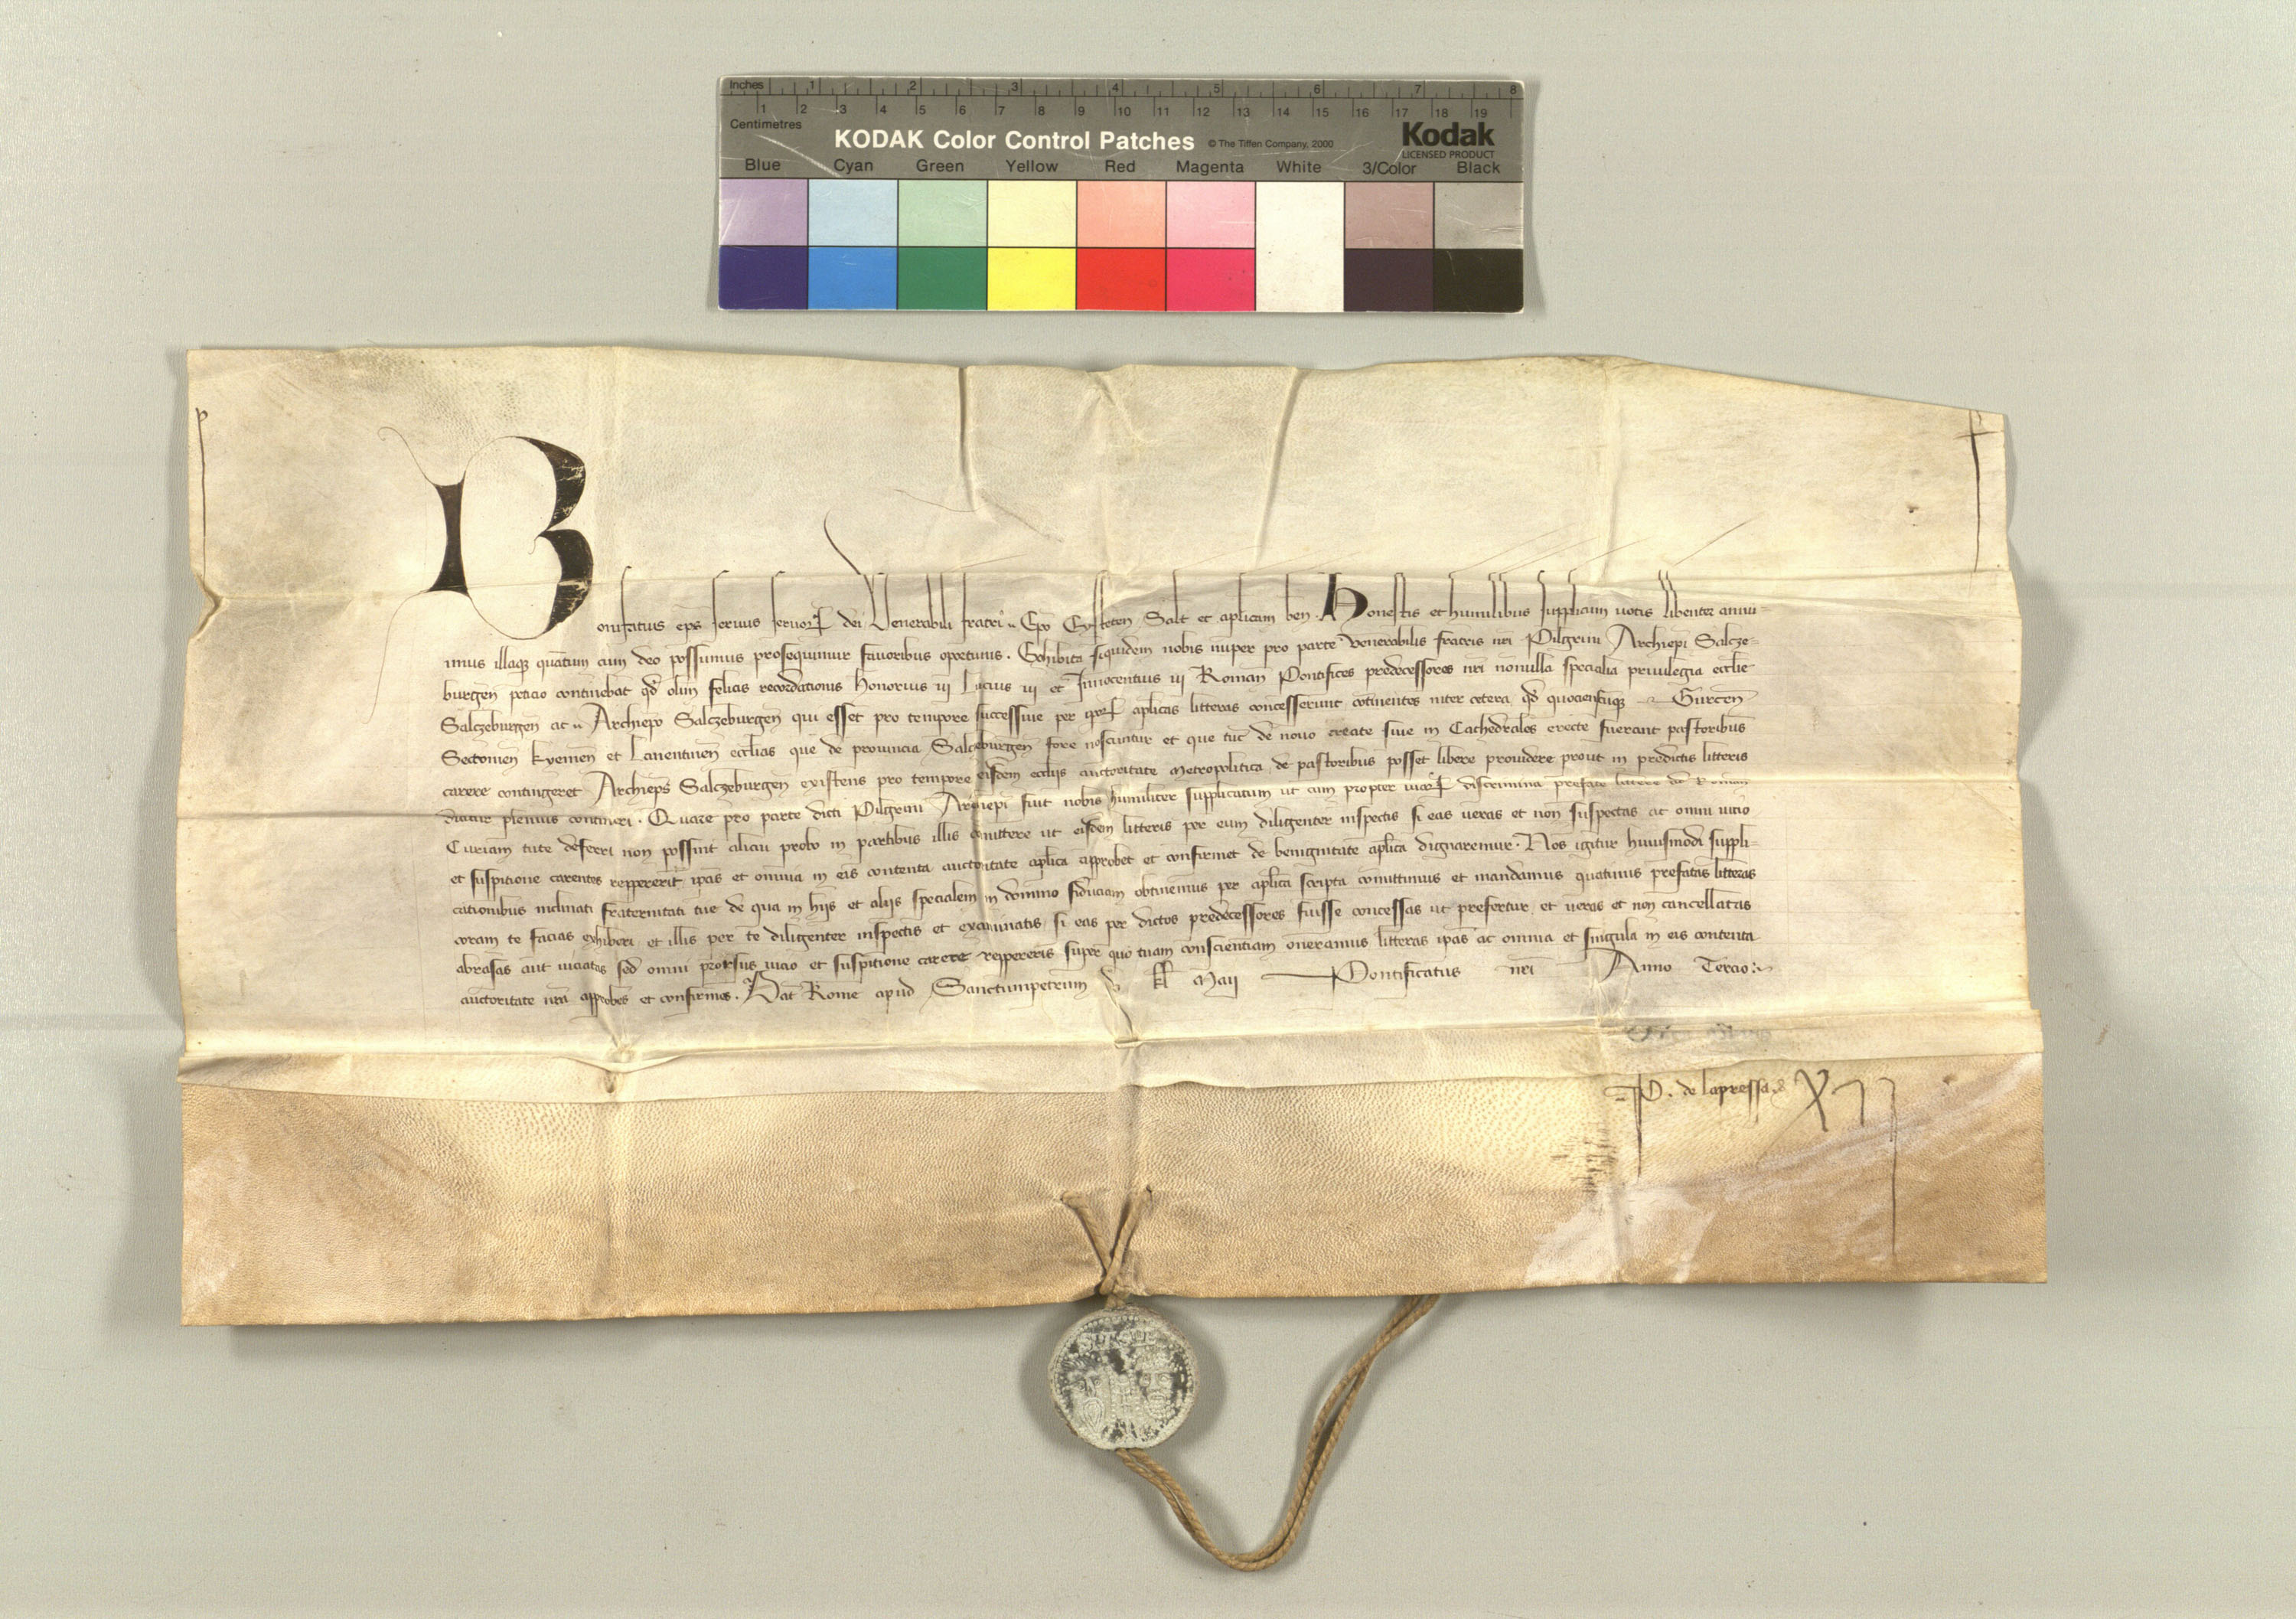 Inches 1 2 3 4 5 6 7 8
1 2 3 4 5 6 7 8 9 10 11 12 13 14 15 16 17 18 19
Centimetres
KODAK Color Control Patches © The Tiffen Company, 2000 Kodak
LICENSED PRODUCT
Blue Cyan Green Yellow Red Magenta White 3/Color Black
Bonifatius ep̄s seruus seruoꝝ dei Venerabili fratri .. Ep̄o Eysteten̄ Salt̄ et ap̄licam ben̄. Honestis et humilibus supplicum uotis libenter annu-
imus illaqꝫ quātum cum deo possumus prosequimur fauoribus oportunis. Exhibita siquidem nobis nuper pro parte venerabilis fratris nr̄i Pilgrimi Archiep̄i Salcze-
burgen̄ peticio continebat qd̄ olim felicis recordationis Honorius iij Lucius iij et Innocentius iij Roman̄ Pontifices predecessores nr̄i nonulla specialia priuilegia eccl̄ie
Salczeburgen̄ ac .. Archiep̄o Salczeburgen̄ qui esset pro tempore successiue per ip̄oꝝ ap̄licas litteras concesserunt cōtinentes inter cetera qd̄ quociencūqꝫ Gurcen̄
Secouien̄ Kyemen̄ et Lauentinen̄ eccl̄ias que de prouincia Salczeburgen̄ fore noscuntur et que tūc de nouo create siue in Cathedrales erecte fuerant pastoribus
carere contingeret Archiep̄s Salczeburgen̄ existens pro tempore eisdem eccl̄ijs auctoritate Metropolitica de pastoribus posset libere prouidere prout in predictis litteris
dicitur plenius contineri. Quare pro parte dicti Pilgrimi Archiep̄i fuit nobis humiliter supplicatum ut cum propter uiaꝝ discrimina prefate littere ad Roman̄
Curiam tute deferri non possint alicui probo in partibus illis cōmittere ut eisdem litteris per eum diligenter inspectis si eas ueras et non suspectas ac omni uicio
et suspitione carentes reppererit ip̄as et omnia in eis contenta auctoritate ap̄lica approbet et confirmet de benignitate ap̄lica dignaremur. Nos igitur huiusmodi suppli-
cationibus inclinati fraternitati tue de qua in hijs et alijs specialem in domino fiduciam obtinemus per ap̄lica scripta cōmittimus et mandamus quatinus prefatas litteras
coram te facias exhiberi et illis per te diligenter inspectis et examinatis si eas per dictos predecessores fuisse concessas ut prefertur et ueras et non cancellatas
abrasas aut uiciatas sed omni prorsus uicio et suspitione carere reppereris super quo tuam conscientiam oneramus litteras ip̄as ac omnia et singula in eis contenta
auctoritate nr̄a approbes et confirmes. Dat̄ Rome apud Sanctumpetrum v kl̄ Maij Pontificatus nr̄i Anno Tercio
P. de lapressa. XII